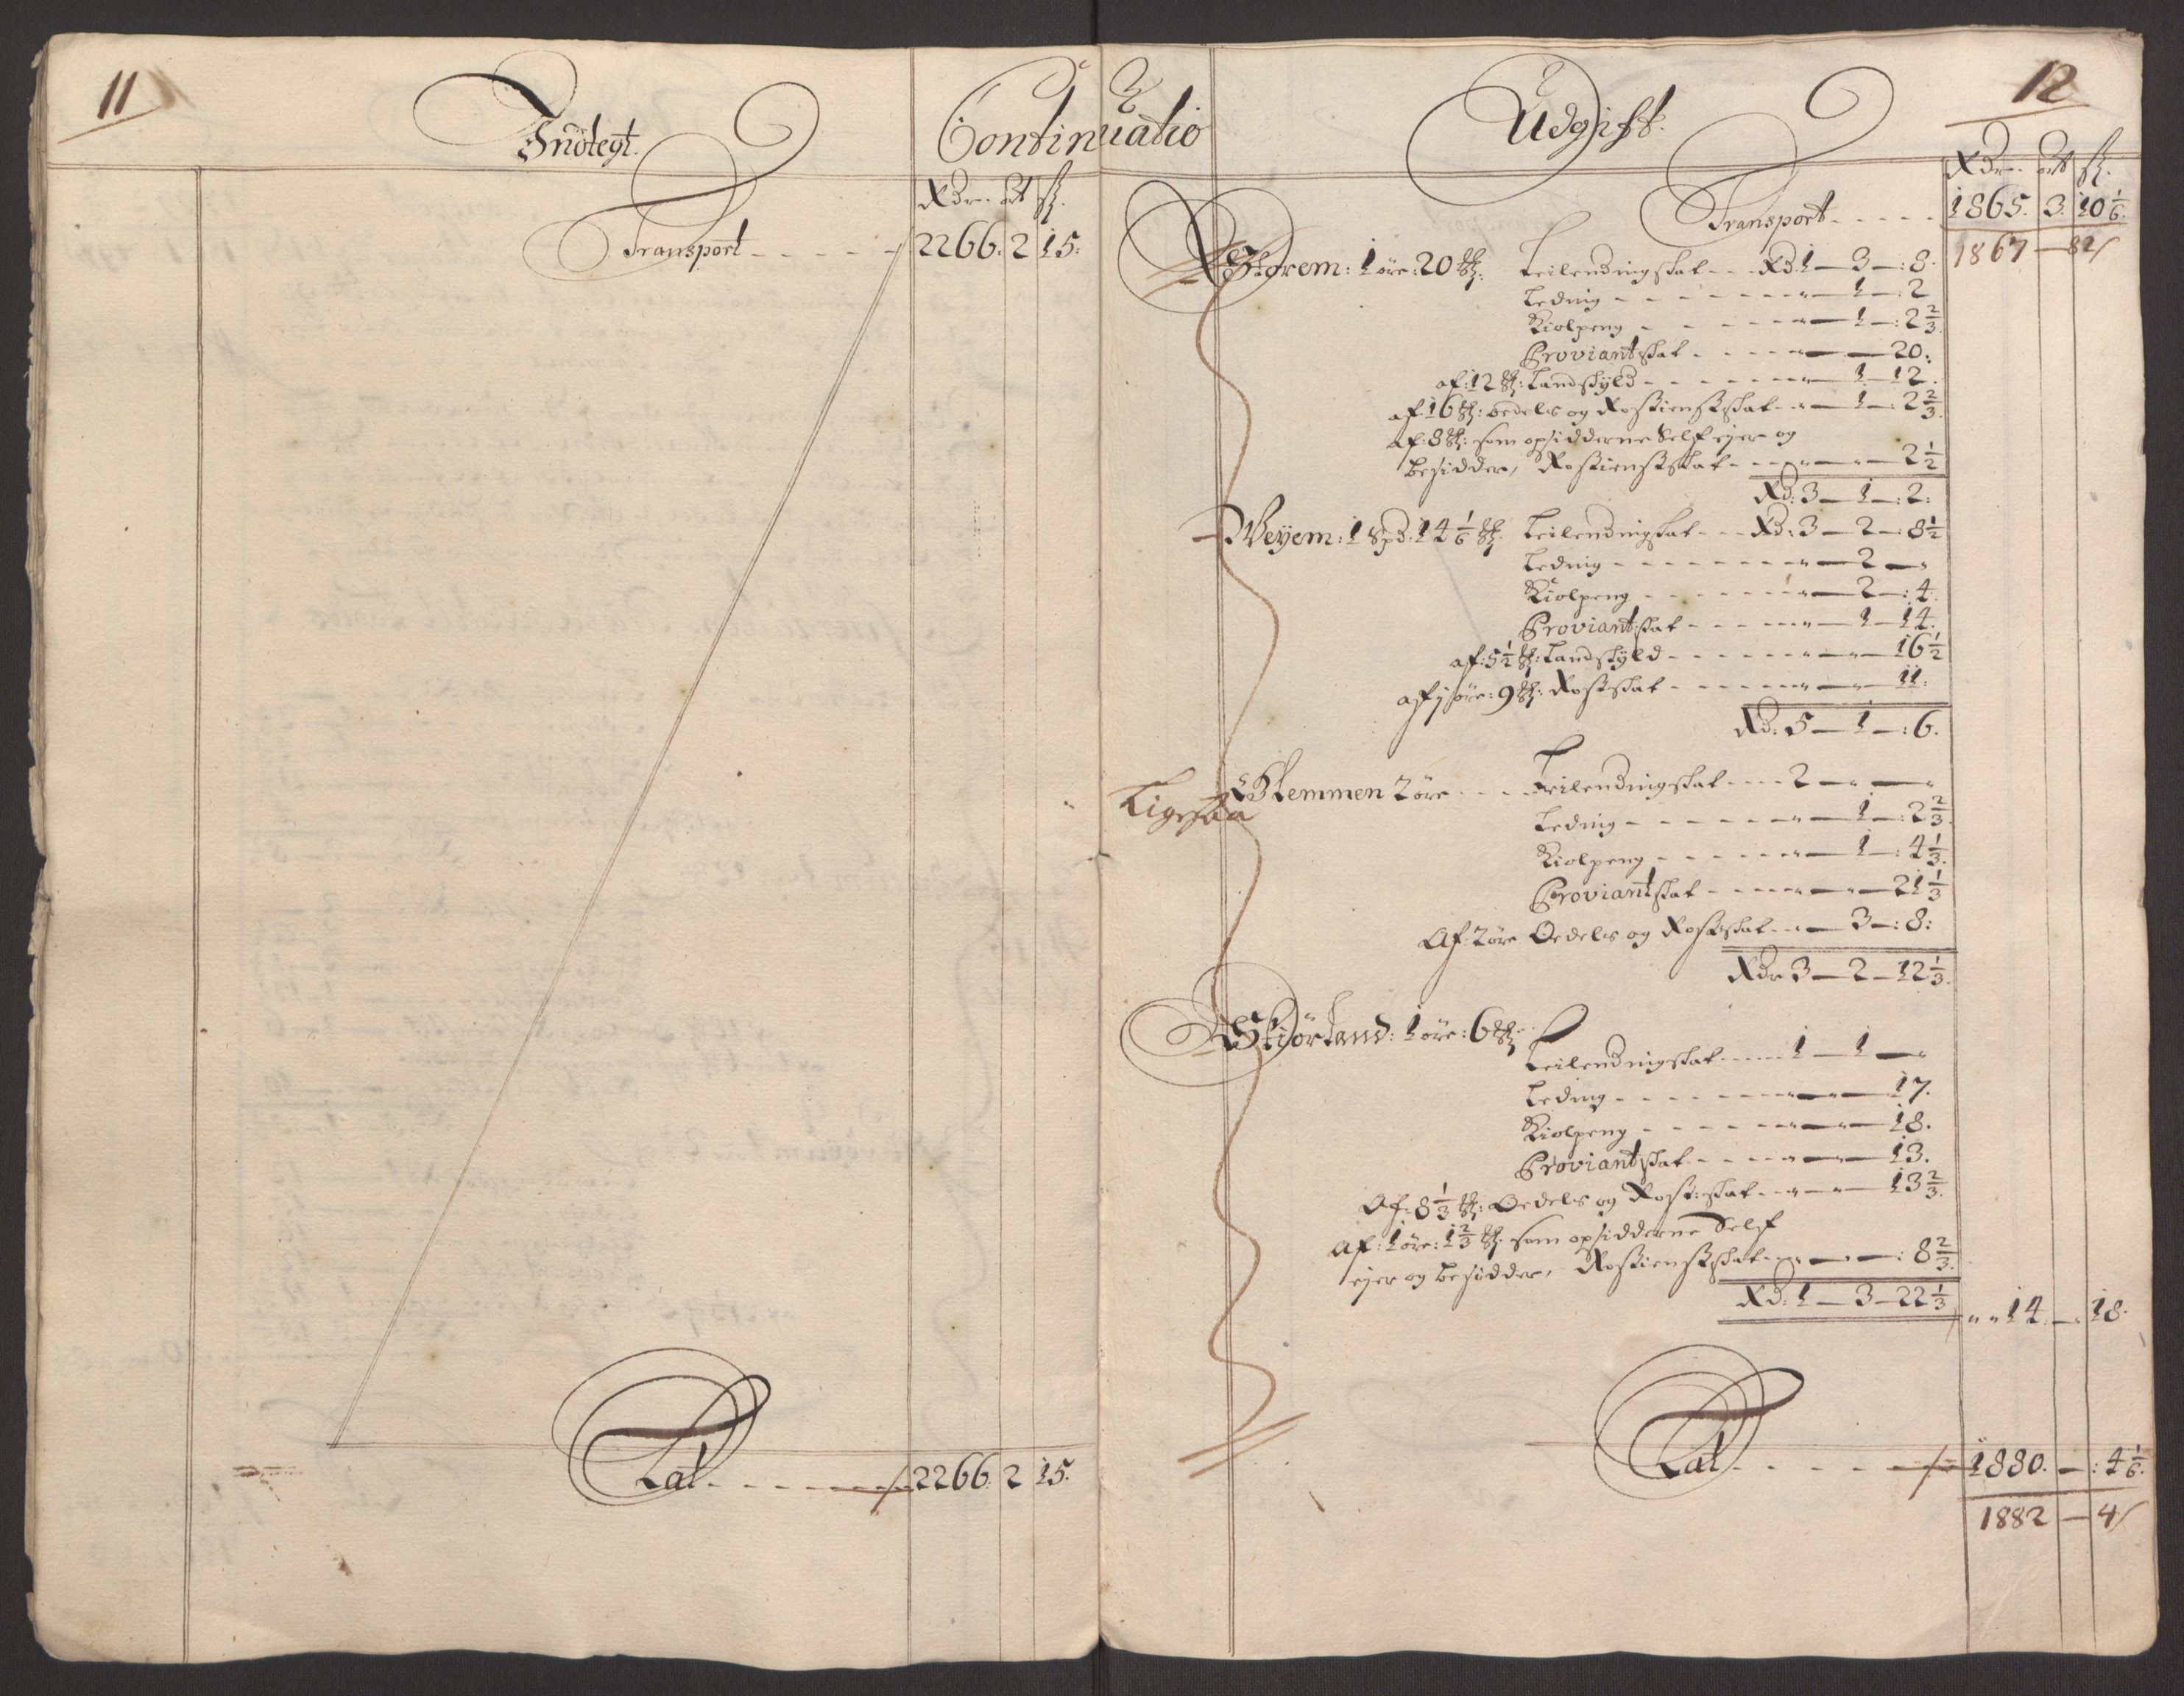 11
Indtegt.
Continuatio
Rdr. ort ß.
Transport - - - - - 2266. 2 15:
Lat. - - - - - - 2266. 2 15.
Udgift.
12
Rdr. ort ß.
Transport - - - - - 1865. 3. 10 1/6.
1867 — 8 2/
Storem: 1 øre: 20 ꝶ: Leilendingskat - - - Rd 1 — 3 —: 8.
Leding - - - - - - - - „ — 1 —: 2
Kiolpeng - - - - - - „ — 1 —: 2 2/3
Proviantskat - - - - - „ — — 20:
af: 12 ꝶ: Landskÿld - - - - - - - „ — 1 — 12.
af 16 ꝶ: oedels og Rostienistskat - - „ — 1 —: 2 2/3.
af: 8 ꝶ: som opsidderne Self ejer og
besidder, Rostienistskat - - - „ — „ — 2 1/2
Rd: 3 — 1 —: 2:
Weyem: 1 Spd: 14 1/6 ꝶ. Leilendingskat - - - Rd: 3 — 2 —: 8 1/2
Leding - - - - - - - - „ — 2 — „
Kiolpeng - - - - - - - „ — 2 —: 4.
Proviantskat - - - - - - „ — 1 — 14.
af: 5 1/2 ꝶ: Landskÿld - - - - - - - „ — „ — 16 1/2
af j øre: 9 ꝶ: Rostskat - - - - - - „ — „ — 11.
Rd: 5 — 1 —: 6.
Ligesaa
Klemmen 2 øre - - - - Leilendingskat - - - - 2 — „ — „
Leding - - - - - - - - „ — 1 —: 2 2/3.
Kiolpeng - - - - - - „ — 1 —: 4 1/3.
Proviantskat - - - - - „ — „ — 21 1/3
Af: 2 øre Oedels og Rostskat - - „ — 3 —: 8:
Rdr 3 — 2 — 12 1/3.
Skiørland: 1 øre: 6 ꝶ:
Leilendingskat - - - - - 1 — 1 — „
Leding - - - - - - - „ — „ — 17.
Kiolpeng - - - - - - „ — „ — 18.
Proviantskat - - - - „ — „ — 13.
Af: 8 1/3 ꝶ: Oedels og Rost: skat - - „ — „ — 13 2/3.
Af: 1 øre: 1 2/3 ꝶ. som opsidderne Self
ejer og besidder, Rostienistskat - - „ — „ —: 8 2/3.
Rd: 1 — 3 — 22 1/3
„ „ 14. — . 18.
Lat - - - - - - 1880. —: 4 1/6.
1882 — 4/